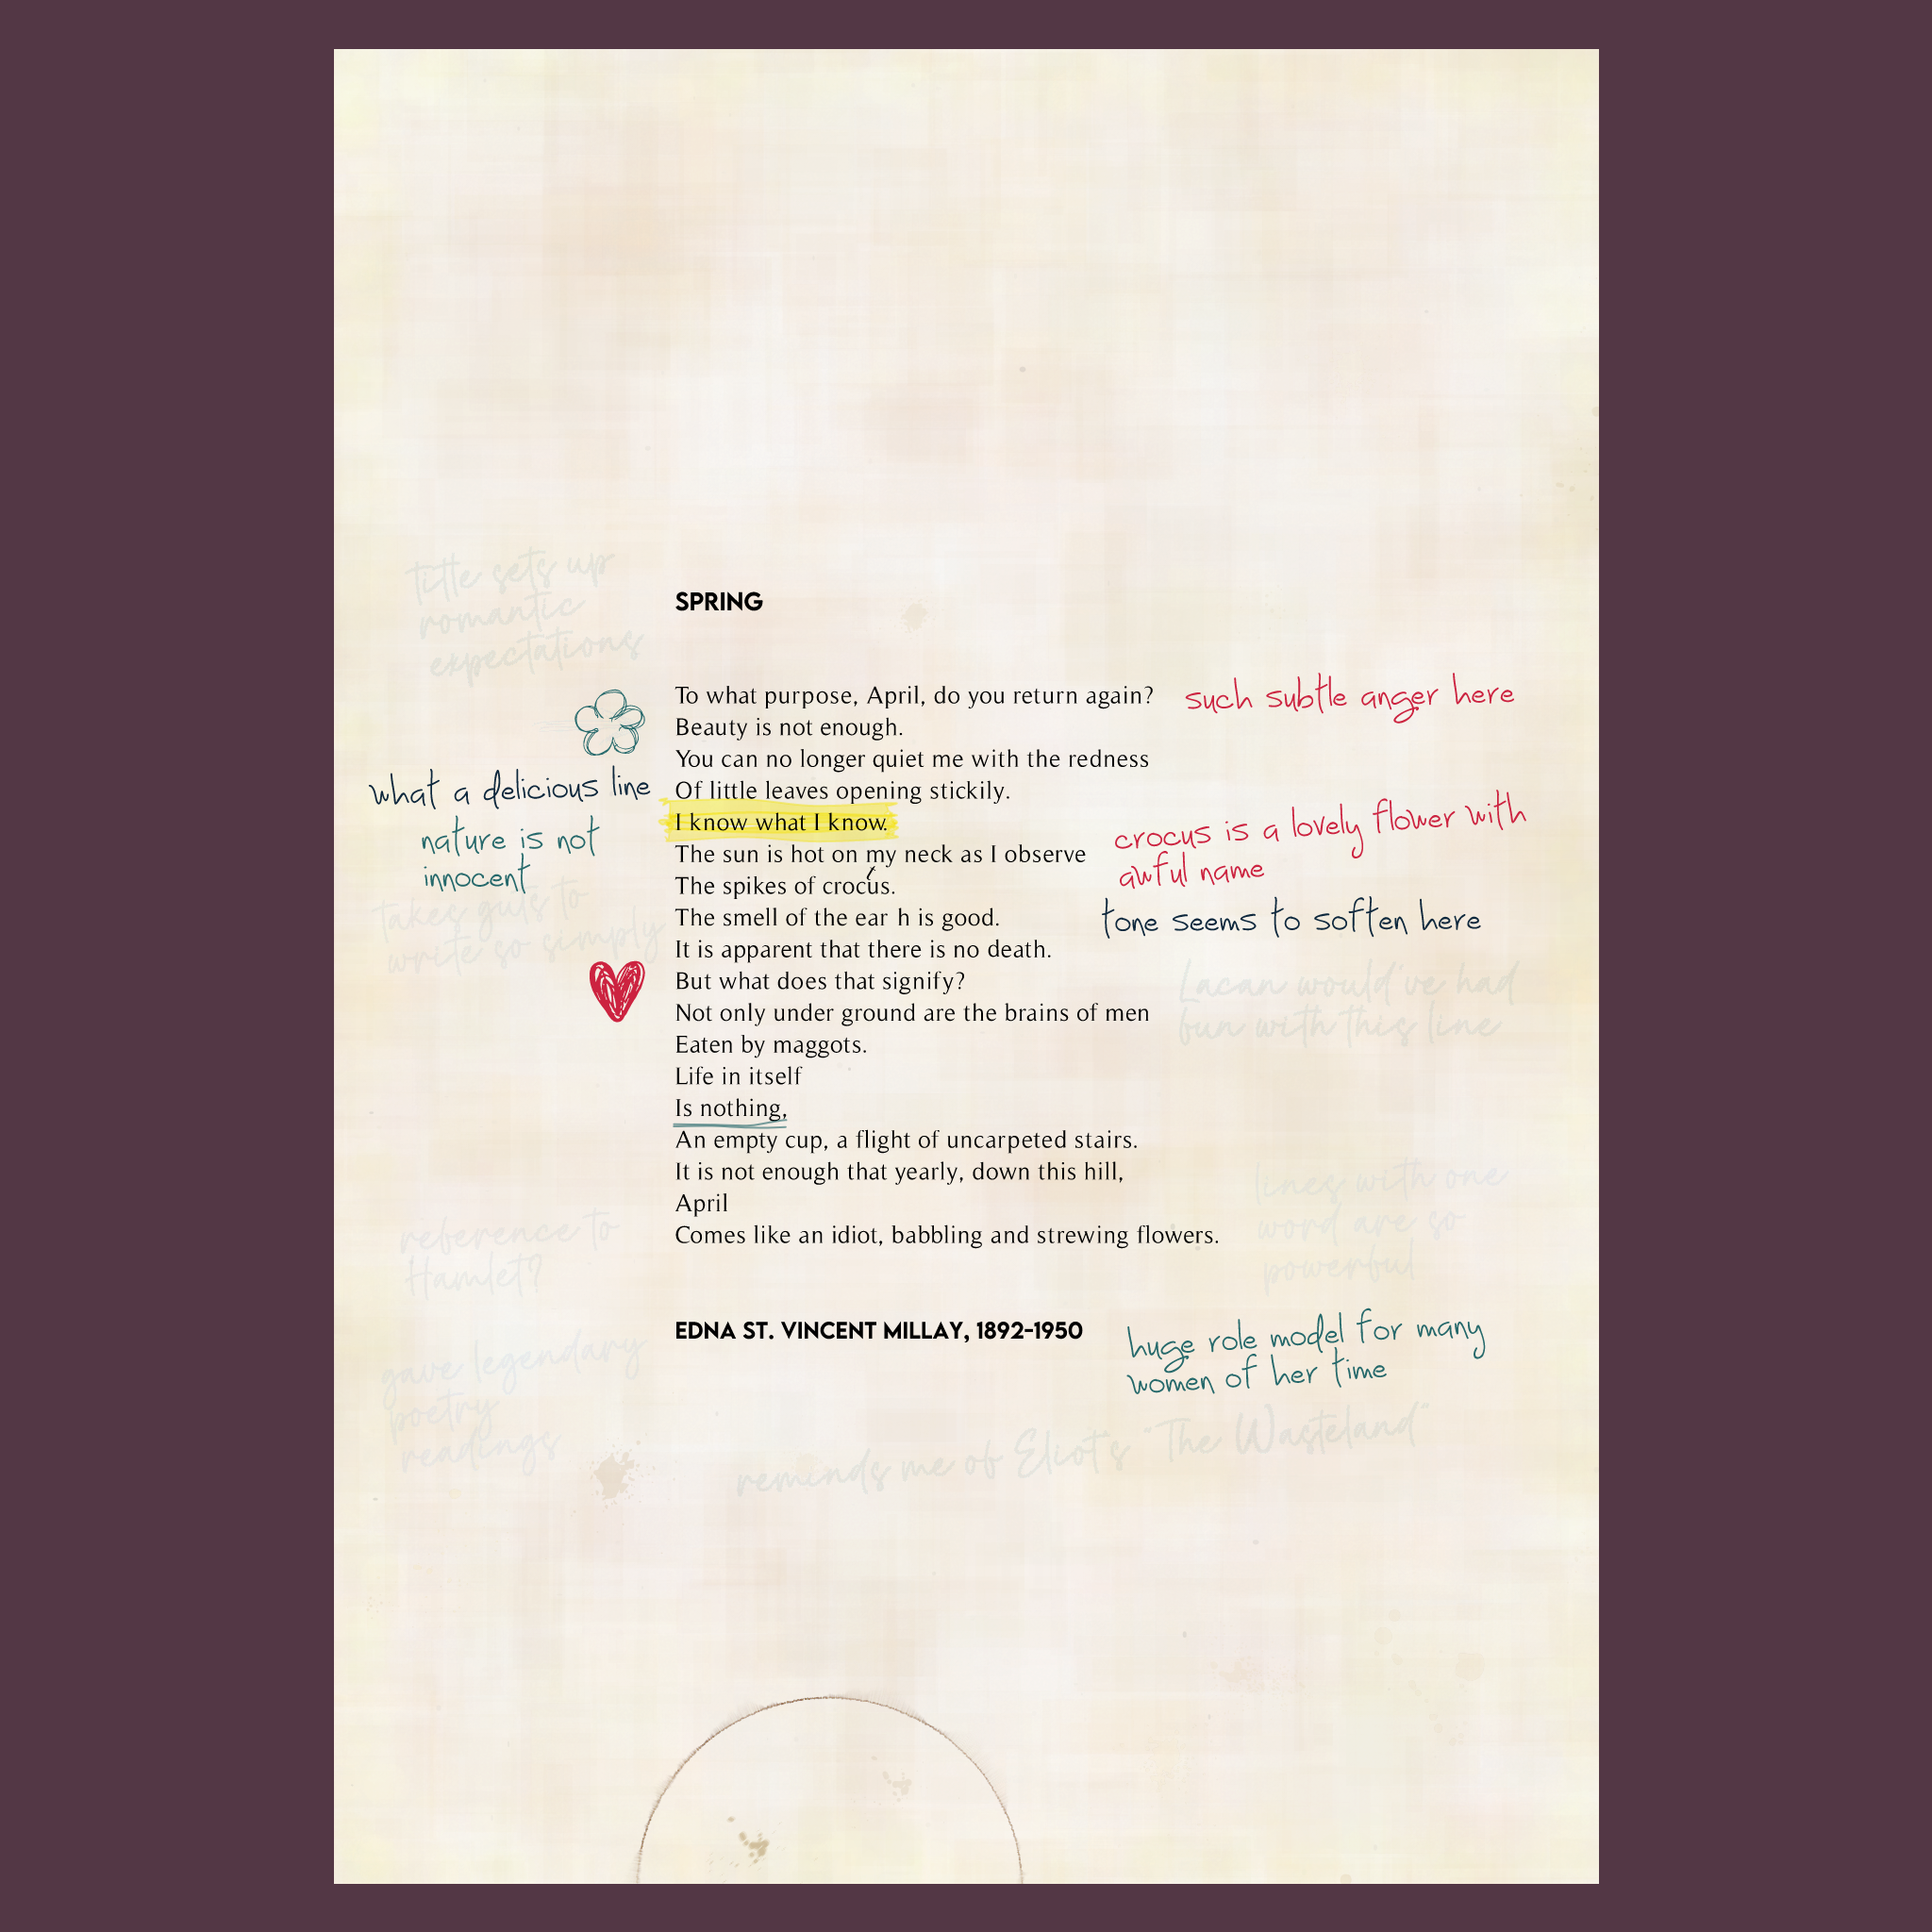 title sets up
romantic
expectations
SPRING
To what purpose, April, do you return again?
such subtle anger here
Beauty is not enough.
You can no longer quiet me with the redness
what a delicious line
Of little leaves opening stickily.
I know what I know.
nature is not
innocent
crocus is a lovely flower with
awful name
The sun is hot on my neck as I observe
t
The spikes of crocus.
The smell of the ear h is good.
tone seems to soften here
takes guts to
write so simply
It is apparent that there is no death.
But what does that signify?
Lacan would've had
fun with this line
Not only under ground are the brains of men
Eaten by maggots.
Life in itself
Is nothing,
An empty cup, a flight of uncarpeted stairs.
It is not enough that yearly, down this hill,
April
Comes like an idiot, babbling and strewing flowers.
lines with one
word are so
powerful
reference to
Hamlet?
EDNA ST. VINCENT MILLAY, 1892-1950
huge role model for many
women of her time
gave legendary
poetry
readings
reminds me of Eliot's "The Wasteland"